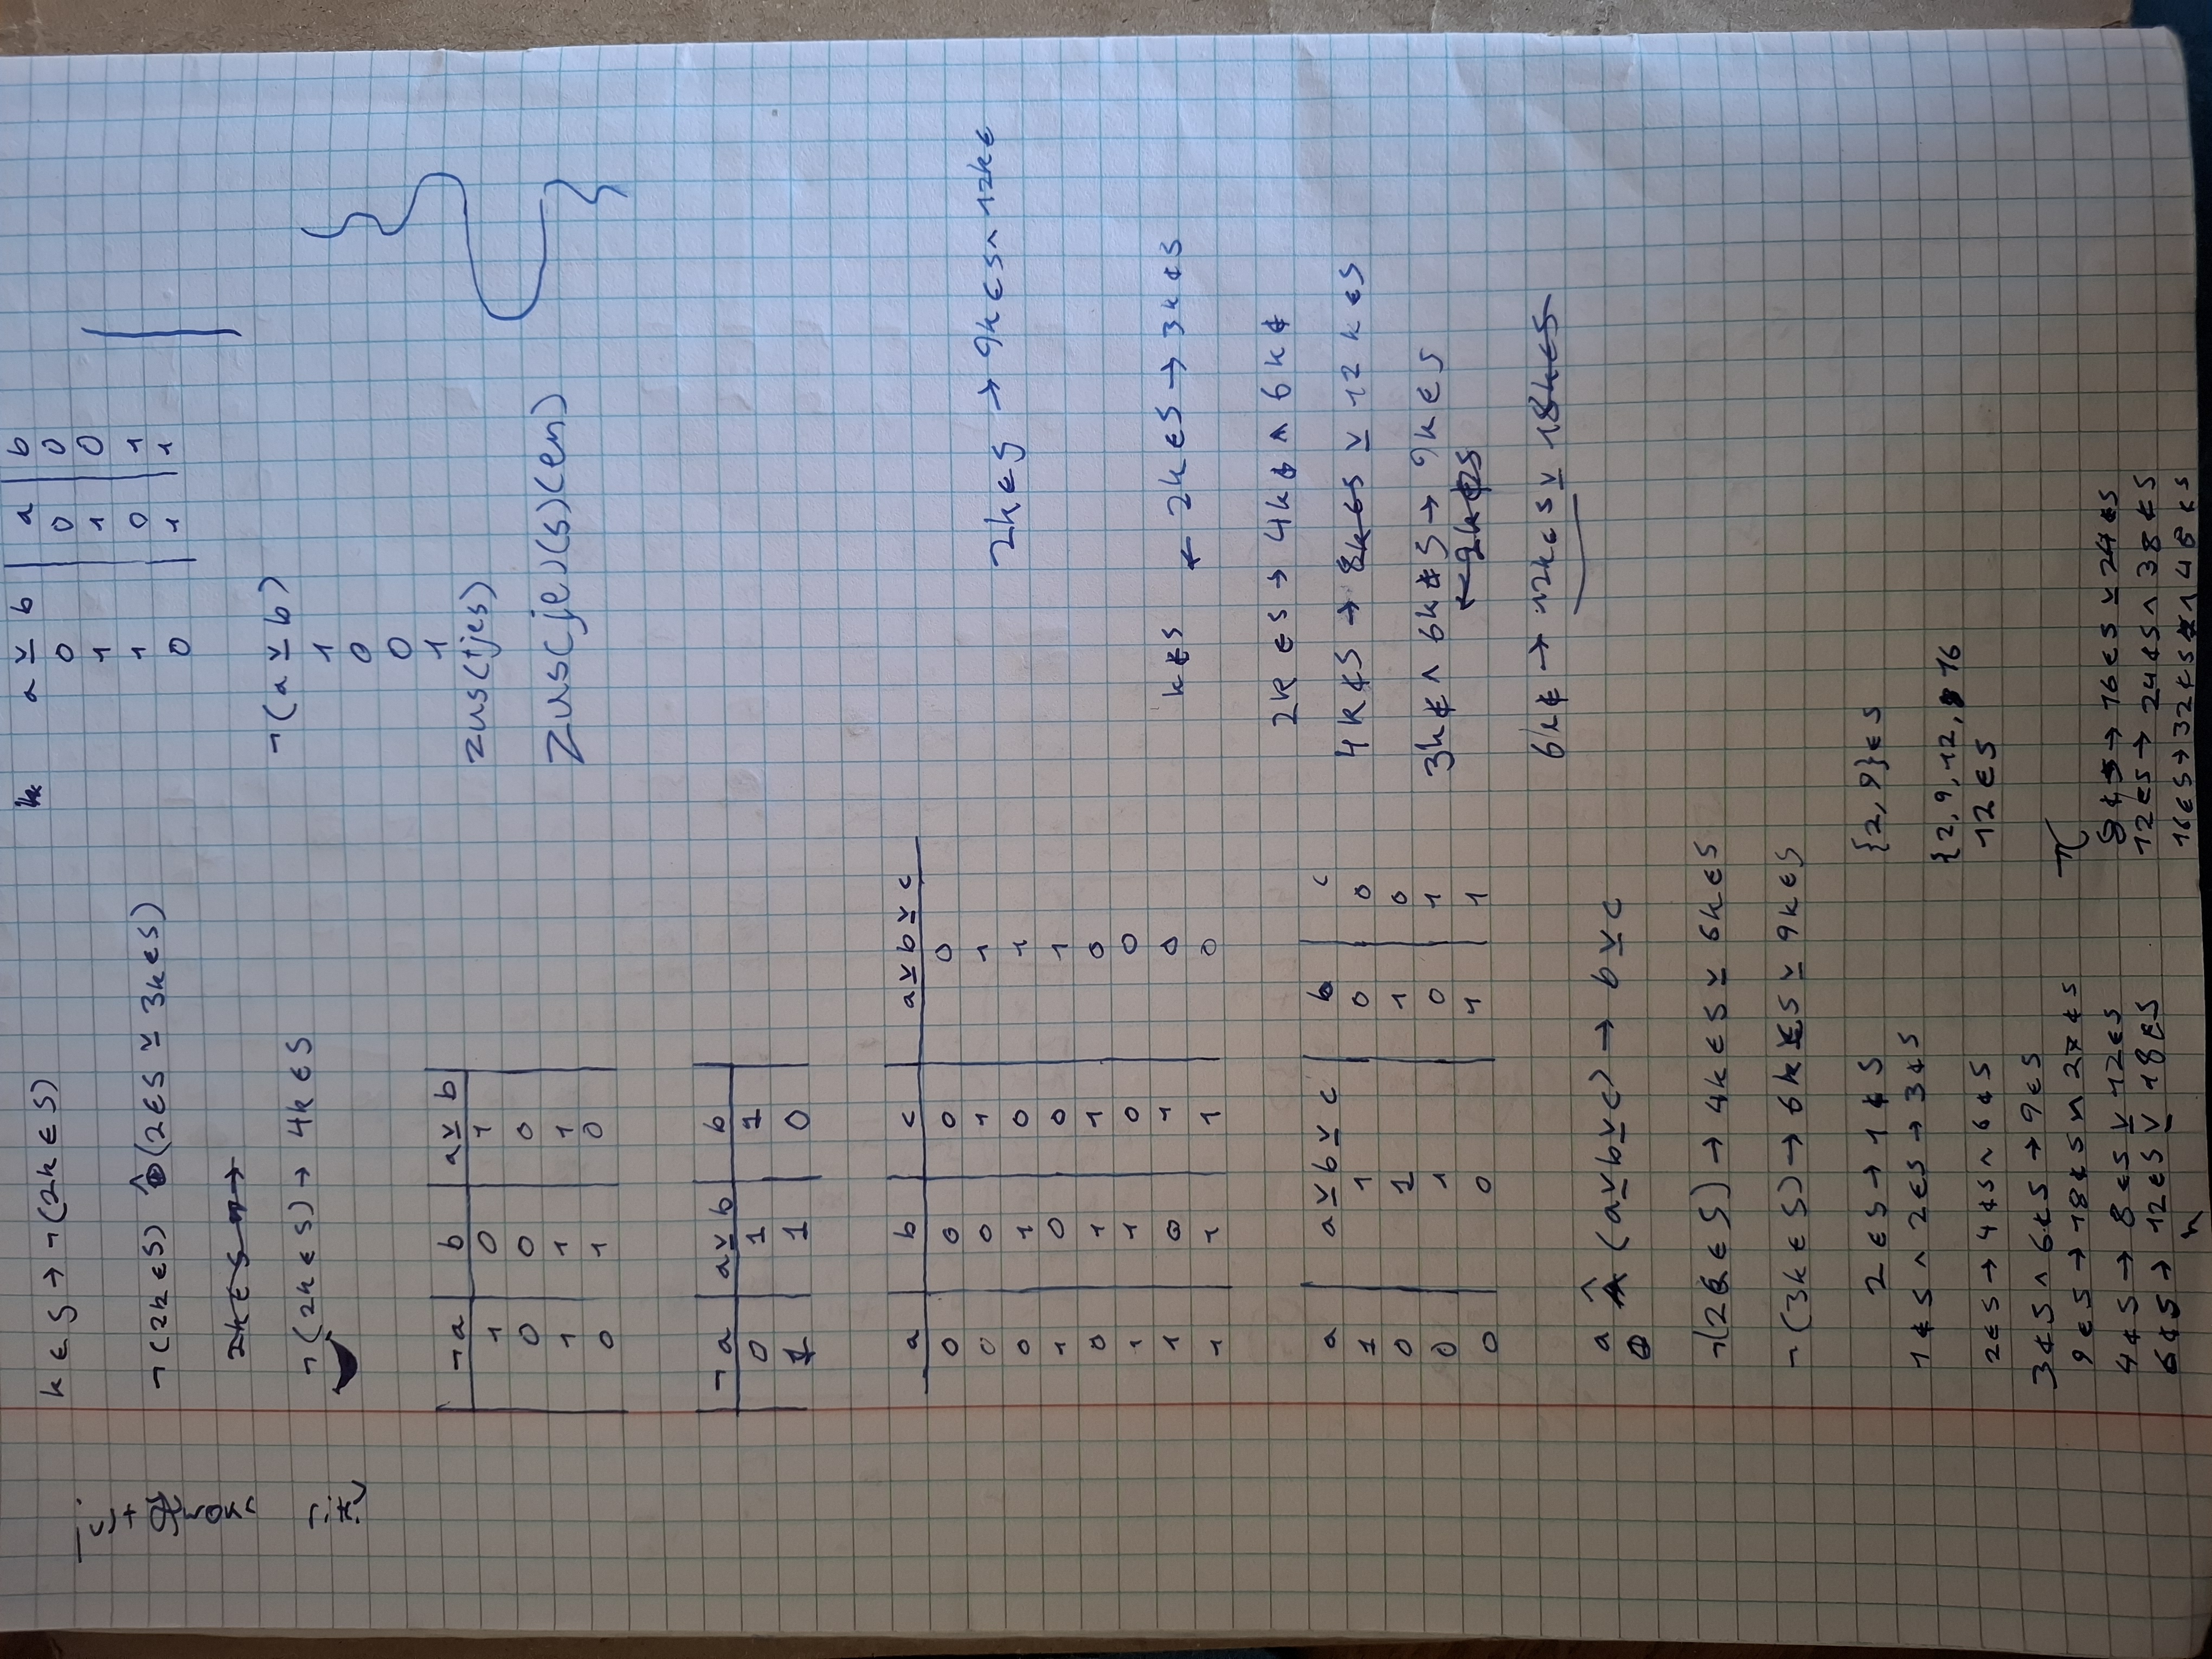 k ∈ S → ¬(2k ∈ S)
¬(2k ∈ S) ∧ (2∈S ⊻ 3k ∈ S)
2k ∈ S →
¬(2k ∈ S) → 4k ∈ S
¬a | b | a ⊻ b
1 | 0 | 1
0 | 0 | 0
1 | 1 | 1
0 | 1 | 0
¬a | a ⊻ b | b
0 | 1 | 1
1 | 1 | 0
a | b | c | a ⊻ b ⊻ c
0 | 0 | 0 | 0
0 | 0 | 1 | 1
0 | 1 | 0 | 1
1 | 0 | 0 | 1
0 | 1 | 1 | 0
1 | 1 | 0 | 0
1 | 0 | 1 | 0
1 | 1 | 1 | 0
a | a ⊻ b ⊻ c | b | c
1 | 1 | 0 | 0
0 | 1 | 1 | 0
0 | 1 | 0 | 1
0 | 0 | 1 | 1
a ∧ (a ⊻ b ⊻ c) → b ⊻ c
¬(2k ∈ S) → 4k ∈ S ⊻ 6k ∈ S
¬(3k ∈ S) → 6k ∈ S ⊻ 9k ∈ S
2 ∈ S → 1 ∉ S
1 ∉ S ∧ 2 ∈ S → 3 ∉ S
2 ∈ S → 4 ∉ S ∧ 6 ∉ S
3 ∉ S ∧ 6 ∉ S → 9 ∈ S
9 ∈ S → 18 ∉ S ∧ 27 ∉ S
4 ∉ S → 8 ∈ S ⊻ 12 ∈ S
6 ∉ S → 12 ∈ S ⊻ 18 ∈ S
a ⊻ b | a | b
0 | 0 | 0
1 | 1 | 0
1 | 0 | 1
0 | 1 | 1
¬(a ⊻ b)
1
0
0
1
zus(tjes)
zus(je)(s)(en)
2k ∈ S → 9k ∈ S ∧ 12k ∈
k ∉ S ← 2k ∈ S → 3k ∉ S
2k ∈ S → 4k ∉ ∧ 6k ∉
4k ∉ S → 8k ∈ S ⊻ 12k ∈ S
3k ∉ ∧ 6k ∉ S → 9k ∈ S
6k ∉ → 12k ∈ S ⊻ 18k ∈ S
{2, 9} ∈ S
{2, 9, 12, 16
12 ∈ S
π
8 ∉ S → 16 ∈ S ⊻ 24 ∈ S
12 ∈ S → 24 ∉ S ∧ 38 ∉ S
16 ∈ S → 32 ∉ S ∧ 48 ∉ S